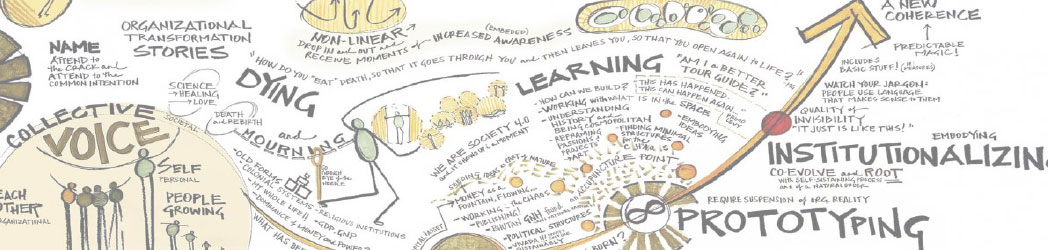 ORGANIZATIONAL
TRANSFORMATION
STORIES
NAME
ATTEND to
the CRACK and
ATTEND to the
COMMON INTENTION
SCIENCE
→HEALING
→LOVE
DEATH
and REBIRTH
COLLECTIVE
VOICE
SOCIETAL
SELF
PERSONAL
PEOPLE
GROWING
EACH
OTHER
ORGANIZATIONAL
NON-LINEAR
DROP IN and OUT and
RECEIVE MOMENTS of
(EMBODIED)
INCREASED AWARENESS
"HOW DO YOU "EAT" DEATH, SO THAT IT GOES THROUGH YOU and THEN LEAVES YOU, SO THAT YOU OPEN AGAIN to LIFE?"
DYING
and
MOURNING
EYE of the
NEEDLE
OLD FORMS
COLONIAL SYSTEMS
"MY WHOLE LIFE!!"
DOMINANCE
MONEY and POWER?
GDP-GNP
RELIGIOUS INSTITUTIONS
WHAT HAS
WE ARE SOCIETY 4.0
LEARNING
"AM I a BETTER
TOUR GUIDE?"
HOW CAN WE BUILD?
WORKING with WHAT IS IN the SPACE
THIS HAS HAPPENED.
THIS CAN HAPPEN AGAIN.
UNDERSTANDING
HISTORY and
BEING COSMOPOLITAN
REFRAMING
PASSIONS
PROJECT
ART
EMBODYING
IDEAS
FINDING MINIMAL
STRUCTURES
ACUPUNCTURE POINT
SEEDING IDEAS
MONEY as a
FOUNTAIN, FLOWING...
WORKING
the CHAOS
PUBLISHING
BHUTAN
GNH
POLITICAL STRUCTURES
BORN?
PROTOTYPING
REQUIRE SUSPENSION of ORG REALITY
A NEW
COHERENCE
PREDICTABLE
MAGIC!
INCLUDES
BASIC STUFF!
WATCH YOUR JARGON:
PEOPLE USE LANGUAGE
THAT MAKES SENSE to THEM
QUALITY of
INVISIBILITY
"IT JUST IS LIKE THIS!"
EMBODYING
INSTITUTIONALIZING
CO-EVOLVE and ROOT
with SELF-SUSTAINING PROCESS
and of a NATURAL ORDER